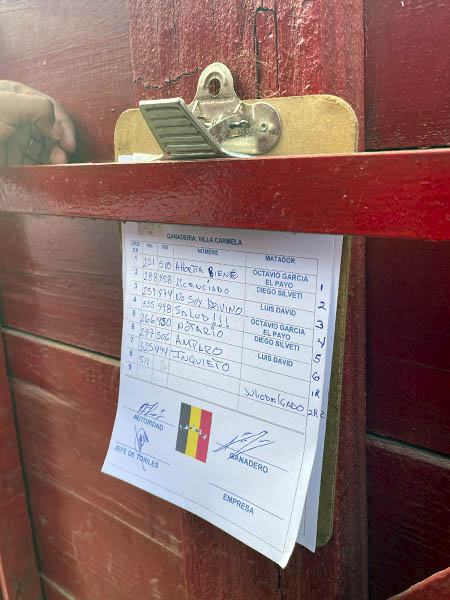 GANADERIA: VILLA CARMELA
ORD EN No. KG NOMBRE MATADOR
1 251 510 AHORITA BIENE OCTAVIO GARCIA EL PAYO 1
2 288 458 LICENCIADO DIEGO SILVETI 2
3 251 474 NO SOY DIVINO LUIS DAVID 3
4 335 498 SALUD!!! OCTAVIO GARCIA EL PAYO 4
5 266 480 NOTARIO DIEGO SILVETI 5
6 297 506 AMPARO LUIS DAVID 6
7 325 494 INQUIETO 1R
8 511 JULIO DELGADO 2R2
9
AUTORIDAD
JEFE DE TORILES
GANADERO
EMPRESA